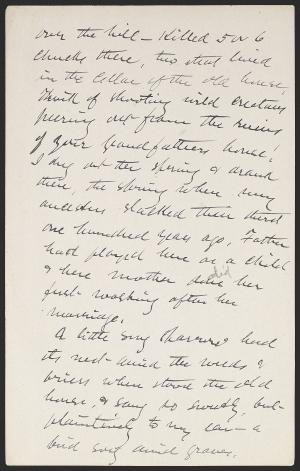 over the hill - Killed 5 or 6
chucks there, two that lived
in the cellar of the old house,
Think of shooting wild creatures
peering out from the ruins
of your grandfathers house!
I dug out the spring & drank
there, the spring where my
ancestors slacked their thirst
one hundred years ago. Father
had played here as a child
& here mother did her
first walking after her
marriage.
A little song sparrow had
its nest amid the weeds &
briers where stood the old
house, & sang so sweetly, but
plaintively to my ear - a
bird song amid graves.